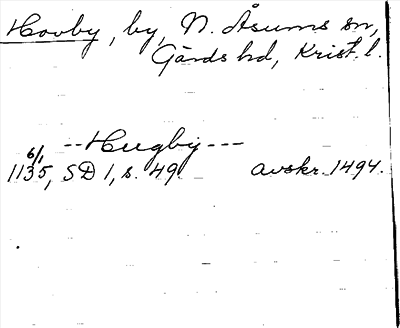 Hovby, by, N. Åsums sn,
Gärds hd, Krist. l.
--Hugby---
6/1 1135, SD 1, s. 49. avskr. 1494.